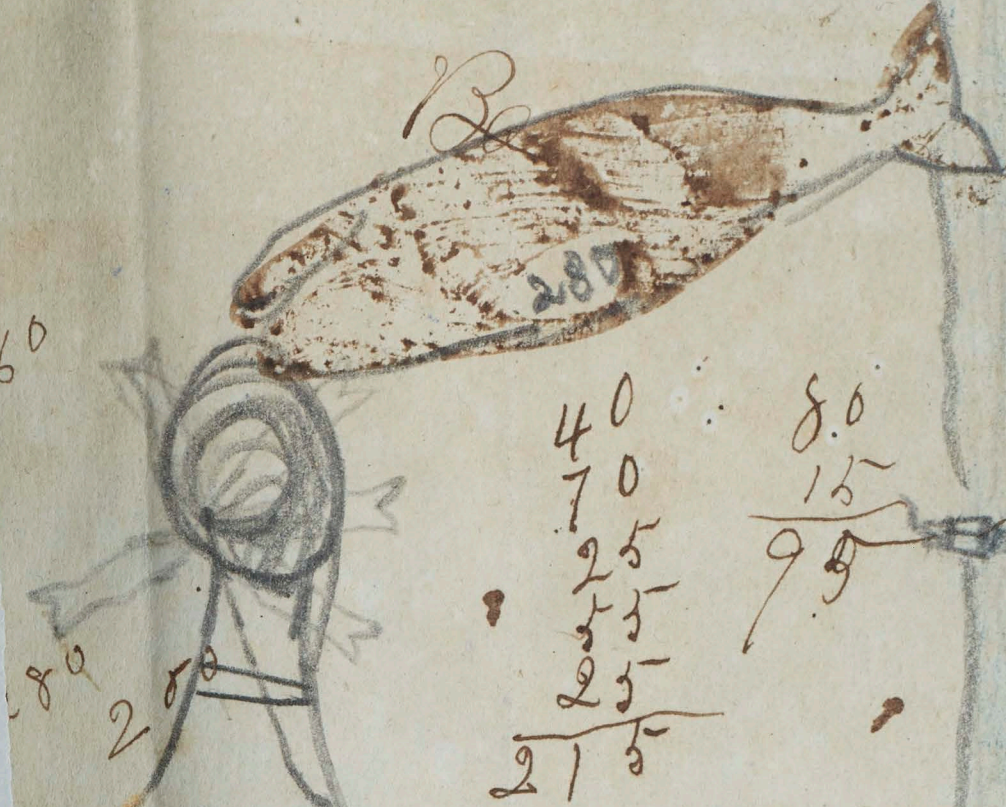 B
280
60
40
70
25
55
25
215
80
15
95
280
280